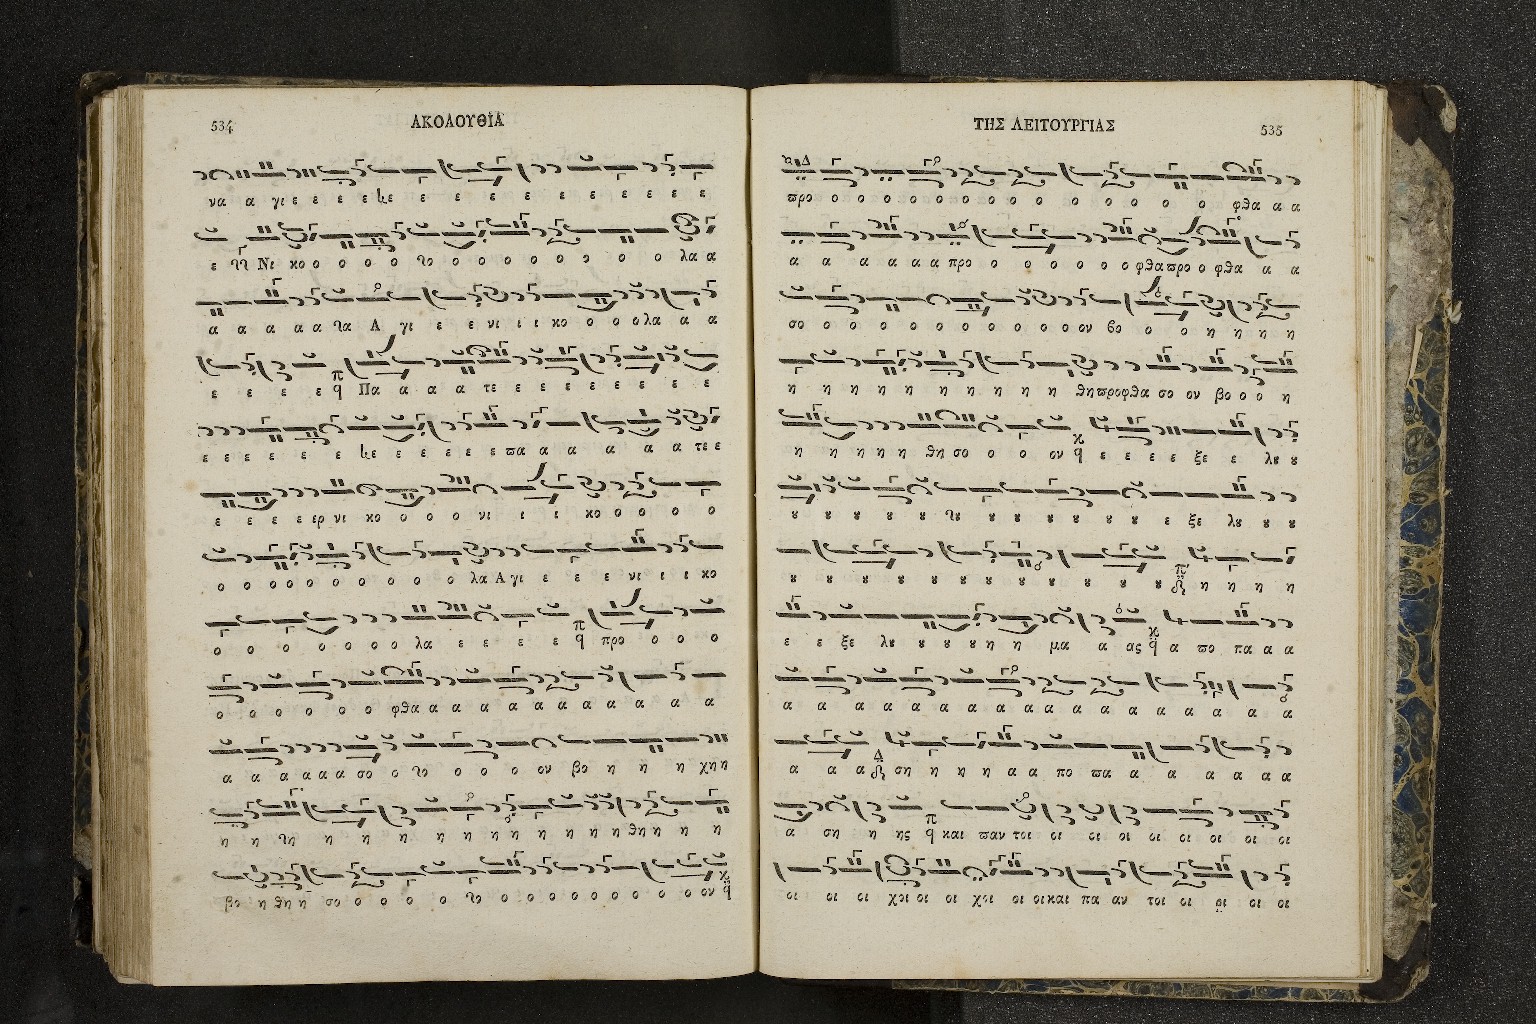 534
ΑΚΟΛΟΥΘΊΑ
να α γι ε ε ε ε ε ε ε ε ε ε ε ε ε ε
ε Νι κο ο ο ο ο ο ο ο ο ο ο ο ο λα α
α α α α α Α γι ε ε νι ι ι κο ο ο ο λα α α
ε ε ε ε Πα α α α τε ε ε ε ε ε ε ε ε
ε ε ε ε ε ε ε ε ε ε ε πα α α α α α τε ε
ε ε ε ε ερ νι κο ο ο ο νι ι ι κο ο ο ο ο
ο ο ο ο ο ο ο ο ο ο ο λα Α γι ε ε ε νι ι ι κο
ο ο ο ο ο ο ο λα ε ε ε ε προ ο ο ο
ο ο ο ο ο ο φθα α α α α α α α α α α α
α α α α α α σο ο ο ο ο ον βο η η η χη η
η η η η η η η η η η η η η θη η η η
βο η θη η σο ο ο ο ο ο ο ο ο ο ο ο ο ο ον
ΤΗΣ ΛΕΙΤΟΥΡΓΙΑΣ
535
προ ο ο ο ο ο ο ο ο ο ο ο ο ο ο φθα α α
α α α α α α προ ο ο ο ο ο ο φθα προ ο φθα α α
σο ο ο ο ο ο ο ο ο ο ο ον βο ο ο η η η η
η η η η η η η η η η θη προφθα σο ον βο ο ο η
η η η η η θη σο ο ο ον ε ε ε ε ξε ε λȣ ȣ
ȣ ȣ ȣ ȣ ȣ ȣ ȣ ȣ ȣ ȣ ε ξε λȣ ȣ ȣ
ȣ ȣ ȣ ȣ ȣ ȣ ȣ ȣ ȣ ȣ ȣ η η η η
ε ε ξε λȣ ȣ ȣ ȣ η η μα α ας α πο πα α α
α α α α α α α α α α α α α α α α α α
α α α ση η η η η α α πο πα α α α α α α
α ση η ης και παν τοι οι οι οι οι οι οι οι οι
οι οι οι χοι οι οι χοι οι οι και πα αν τοι οι οι οι οι